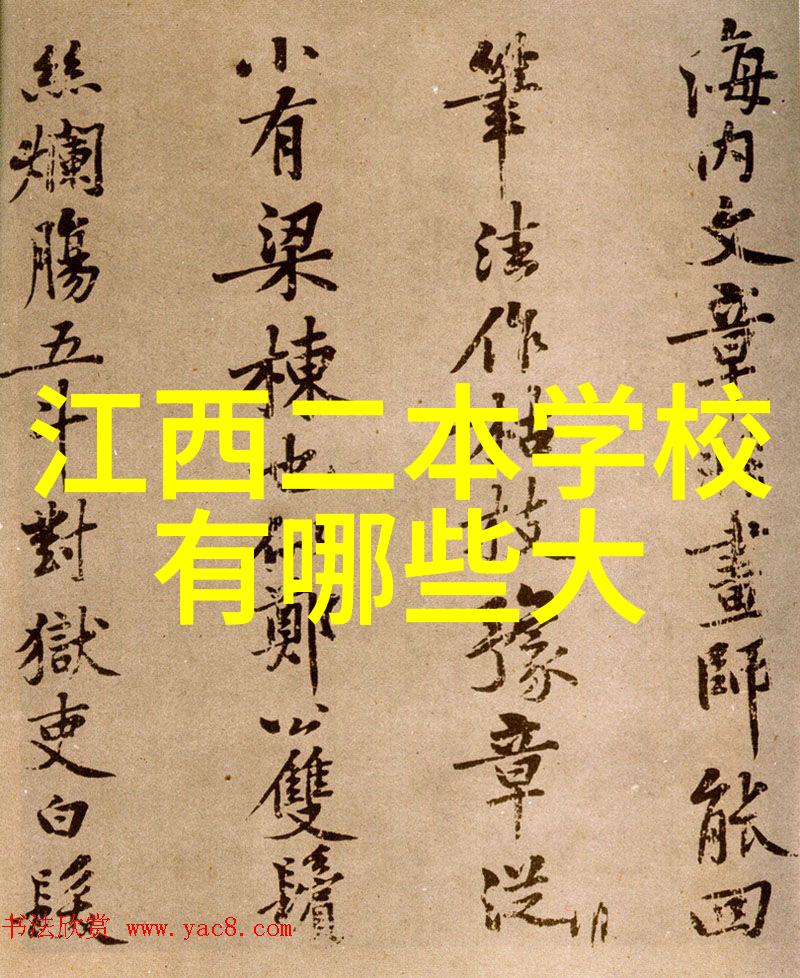 海内文章非畫師能回
筆法作枯枝豫章從
小有梁棟也似鄭公雙鬢
絲爛腸五斗對獄吏白髮
江西二本学校
有哪些大
书法欣赏 www.yac8.com